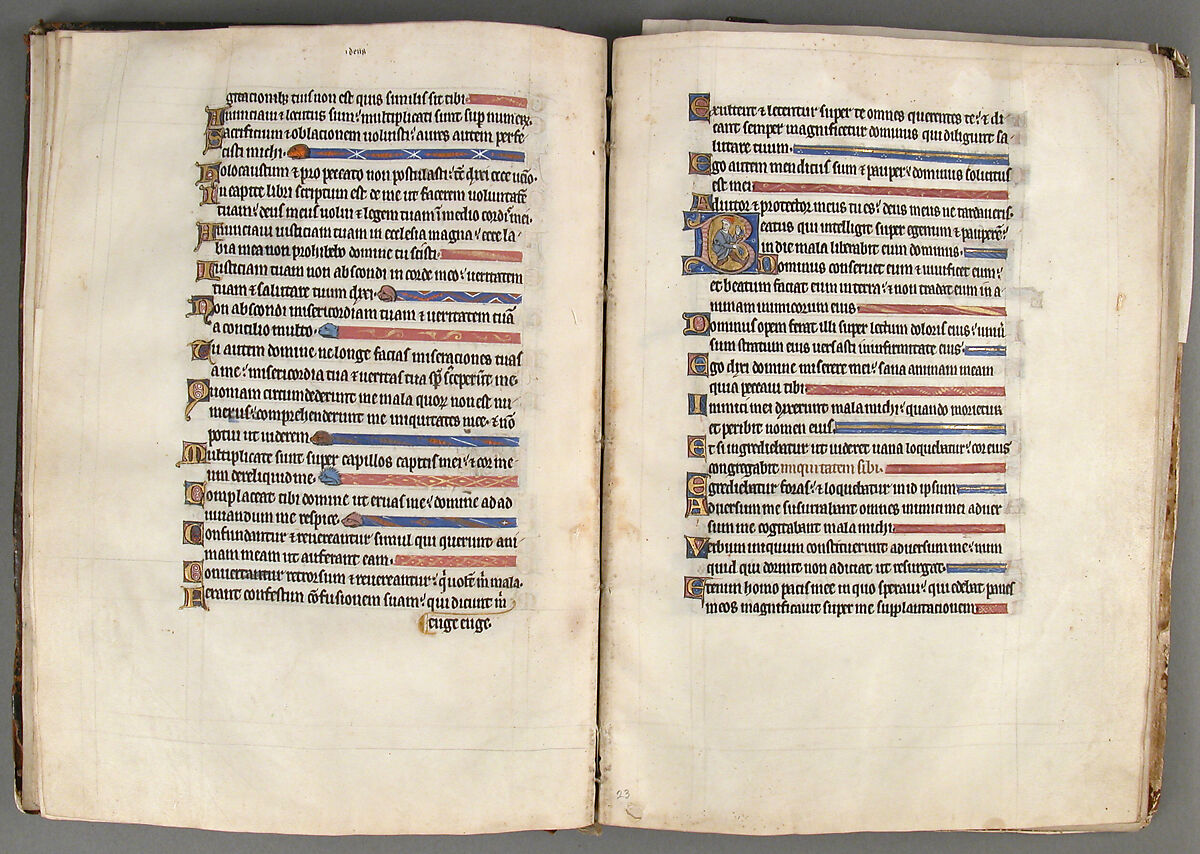 deus
gitationibus tuis non est quis similis sit tibi.
Annunciaui & locutus sum: multiplicati sunt sup numerum.
Sacrificium & oblationem noluisti: aures autem perfe
cisti michi.
Holocaustum & pro peccato non postulasti: tc dixi ecce uenio.
In capite libri scriptum est de me ut facerem uoluntatē
tuam: deus meus uolui & legem tuam in medio cordis mei.
Annunciaui iusticiam tuam in ecclesia magna: ecce la
bia mea non prohibebo domine tu scisti.
Iusticiam tuam non abscondi in corde meo: ueritatem
tuam & salutare tuum dixi.
Non abscondi misericordiam tuam & ueritatem tuā
a concilio multo.
Tu autem domine ne longe facias miseraciones tuas
a me: misericordia tua & ueritas tua sp susceperūt me.
Quoniam circumdederunt me mala quorum non est nu
merus: comprehenderunt me iniquitates mee: & nō
potui ut uiderem.
Multiplicate sunt super capillos capitis mei: & cor me
um dereliquid me.
Complaceat tibi domine ut eruas me: domine ad ad
iuuandum me respice.
Confundantur & reuereantur simul qui querunt ani
mam meam ut auferant eam.
Conuertantur retrorsum & reuereantur: qui uolūt m̄ mala.
Ferant confestim cōfusionem suam: qui dicunt m̄
euge euge.
Exultent & letentur super te omnes querentes te: & di
cant semper magnificetur dominus qui diligunt sa
lutare tuum.
Ego autem mendicus sum & pauper: dominus solicitus
est mei.
Adiutor & protector meus tu es: deus meus ne tardaueris.
Beatus qui intelligit super egenum & pauperē:
in die mala liberabit eum dominus.
Dominus conseruet eum & uiuificet eum:
et beatum faciat eum in terra: & non tradat eum in a
nimam inimicorum eius.
Dominus opem ferat illi super lectum doloris eius: uniu
sum stratum eius uersasti in infirmitate eius.
Ego dixi domine miserere mei: sana animam meam
quia peccaui tibi.
Inimici mei dixerunt mala michi: quando morietur
et peribit nomen eius.
Et si ingrediebatur ut uideret uana loquebatur: cor eius
congregabit iniquitatem sibi.
Egrediebatur foras: & loquebatur in id ipsum.
Aduersum me susurrabant omnes inimici mei: aduer
sum me cogitabant mala michi.
Verbum iniquum constituerunt aduersum me: num
quid qui dormit non adiciat ut resurgat.
Etenim homo pacis mee in quo speraui: qui edebat panes
meos magnificauit super me supplantacionem.
23